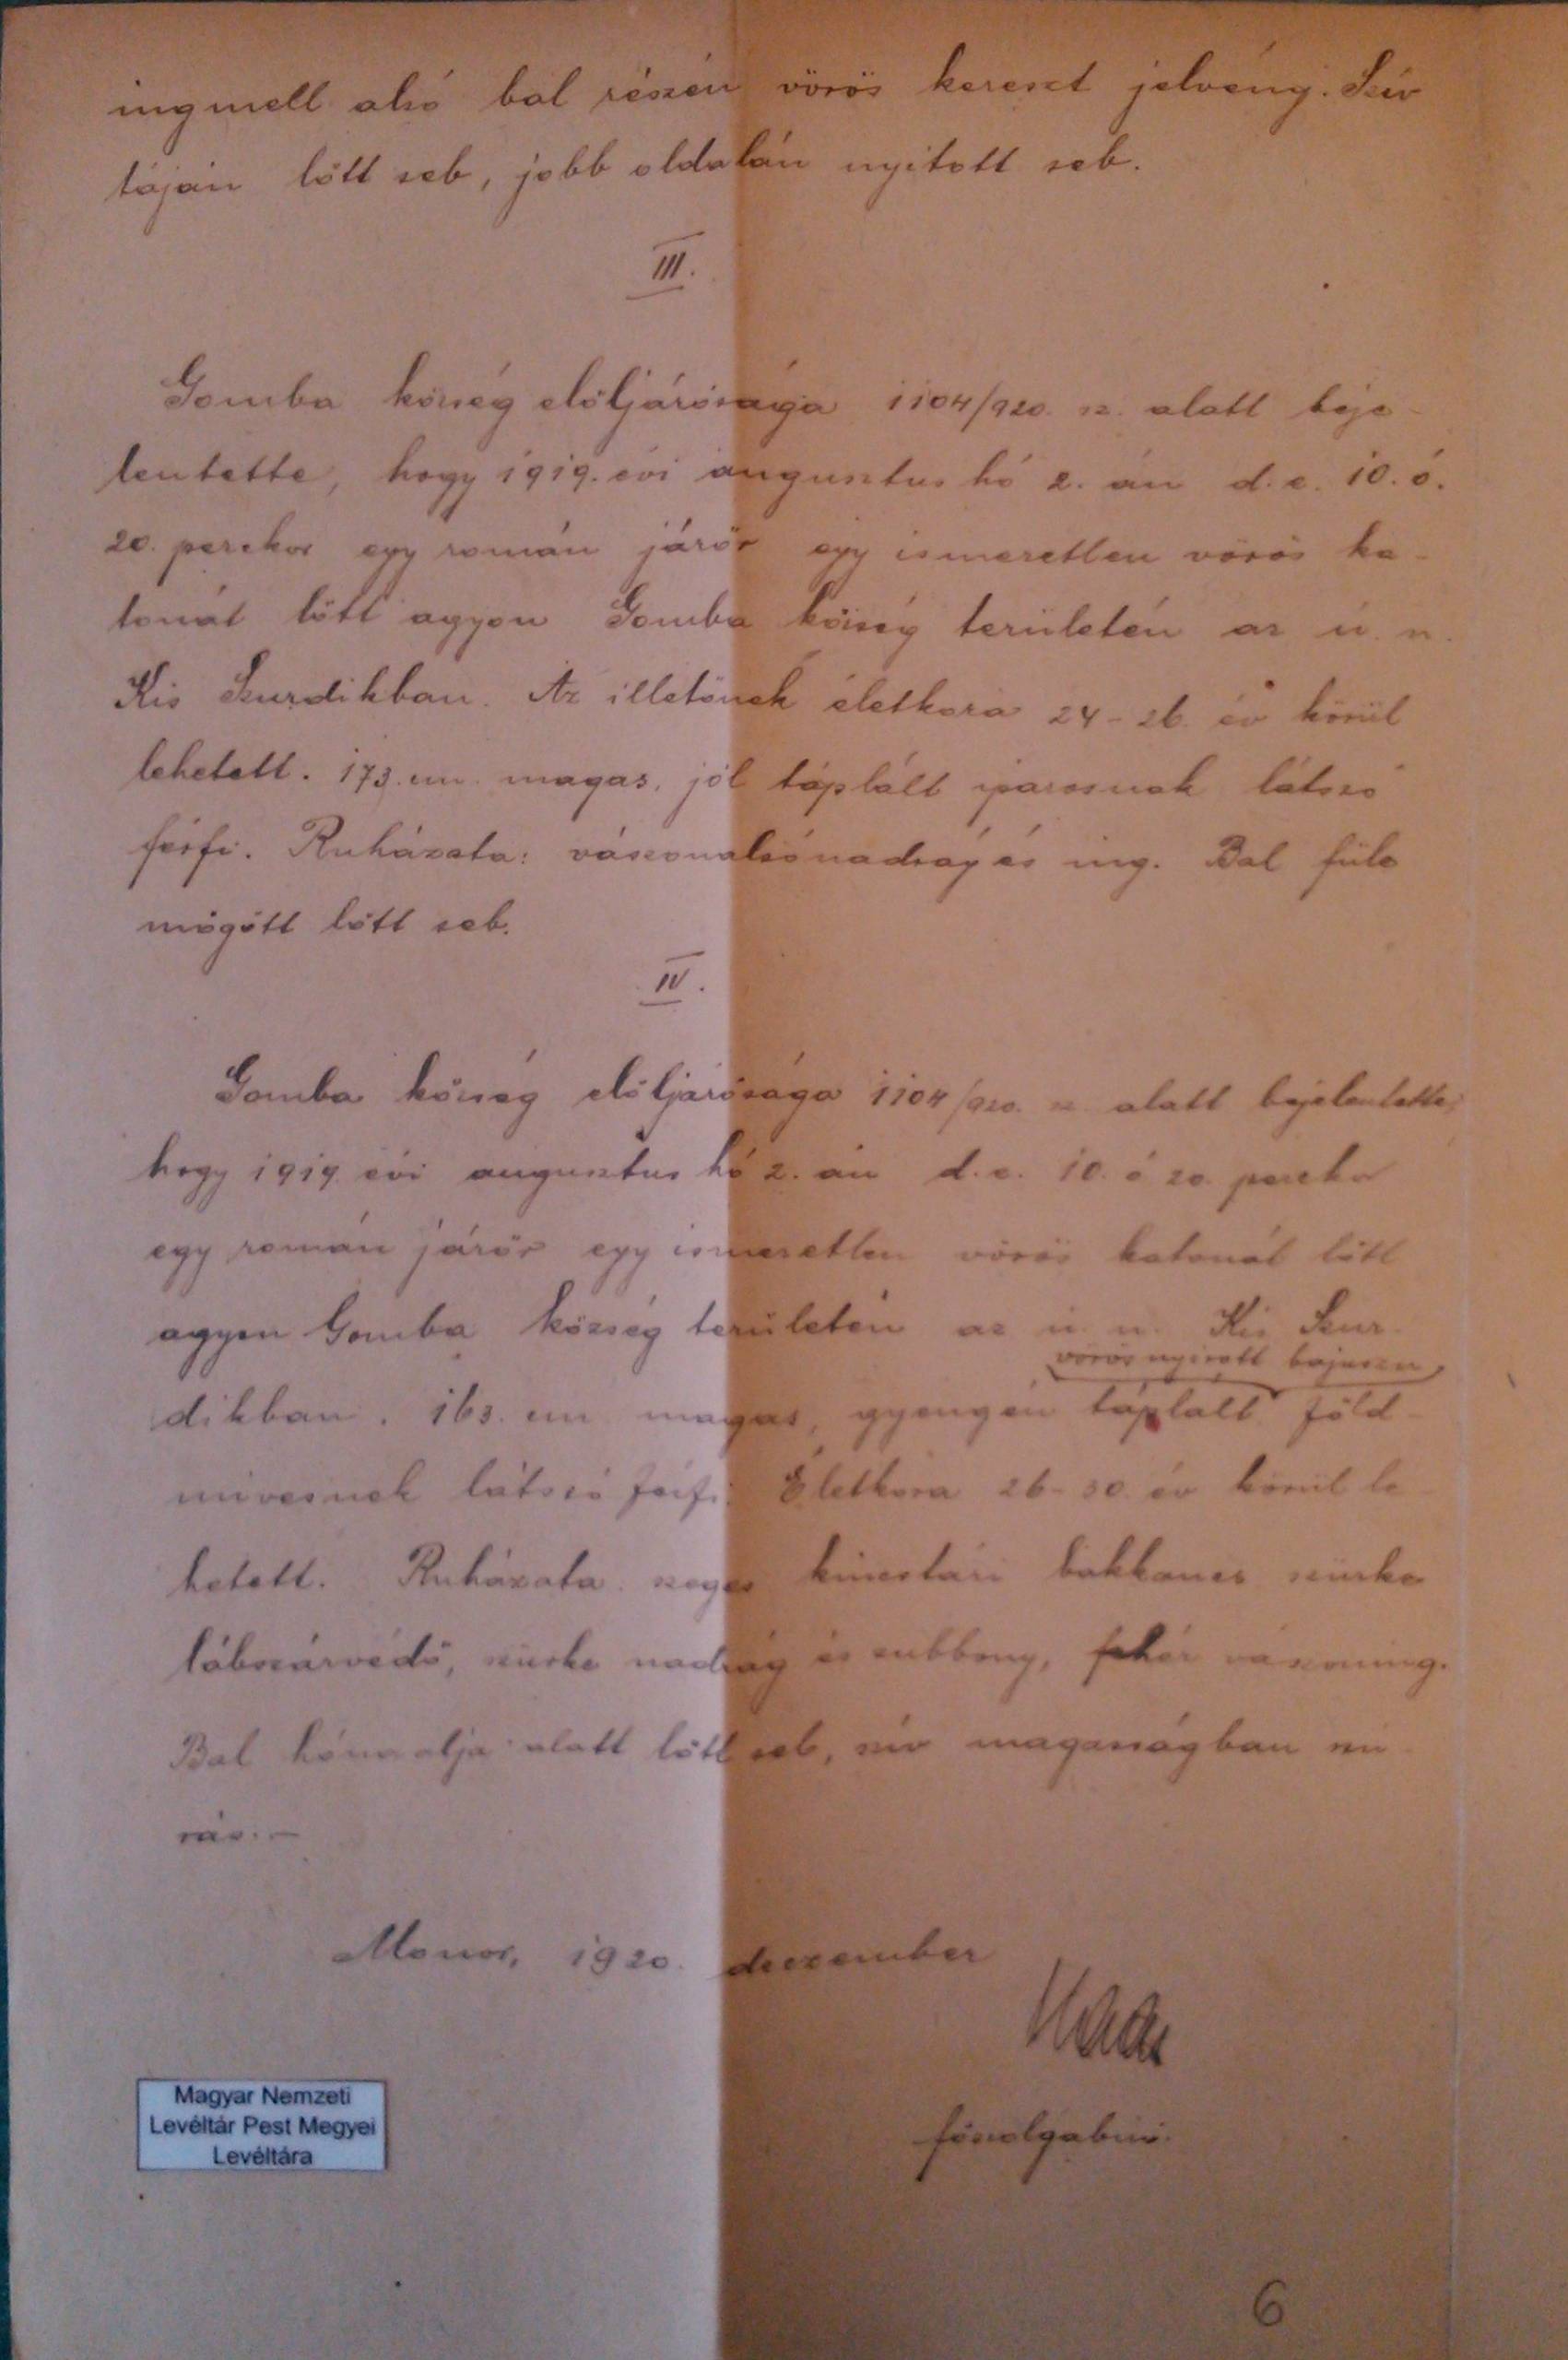 ingmell alsó bal részén vörös kereszt jelvény. Szív
táján lőtt seb, jobb oldalán nyitott seb.
III.
Gomba község előljárósága 1104/920. sz. alatt beje-
lentette, hogy 1919. évi augusztus hó 2. án d. e. 10. ó.
20. perckor egy román járőr egy ismeretlen vörös ka-
tonát lőtt agyon Gomba község területén az ú. n.
Kis Szurdikban. Az illetőnek életkora 24-26. év körül
lehetett. 173. cm. magas, jól táplált iparosnak látszó
férfi. Ruházata: vászonalsónadrág és ing. Bal füle
mögött lőtt seb.
IV.
Gomba község előljárósága 1104/920. sz. alatt bejelentette,
hogy 1919 évi augusztus hó 2. án d. e. 10. ó 20. perckor
egy román járőr egy ismeretlen vörös katonát lőtt
agyon Gomba község területén az ú. n. Kis Szur-
vörös nyirott bajuszu
dikban. 163. cm magas, gyengén táplált föld-
mivesnek látszó férfi. Életkora 26-30. év körül le-
hetett. Ruházata szeges kincstári bakkancs szürke
lábszárvédő, szürke nadrág és zubbony, fehér vászoning.
Bal hóna alja alatt lőtt seb, szív magasságban szú-
rás. —
Monor, 1920. deczember
főszolgabiró.
Magyar Nemzeti
Levéltár Pest Megyei
Levéltára
6